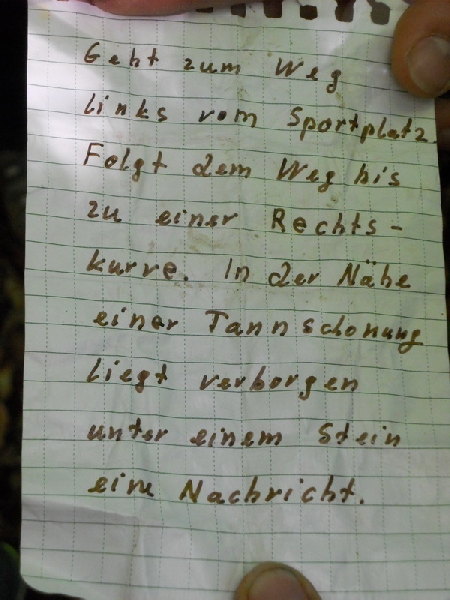 Geht zum Weg
links vom Sportplatz.
Folgt dem Weg bis
zu einer Rechts-
kurve. In der Nähe
einer Tannschonung
liegt verborgen
unter einem Stein
eine Nachricht.